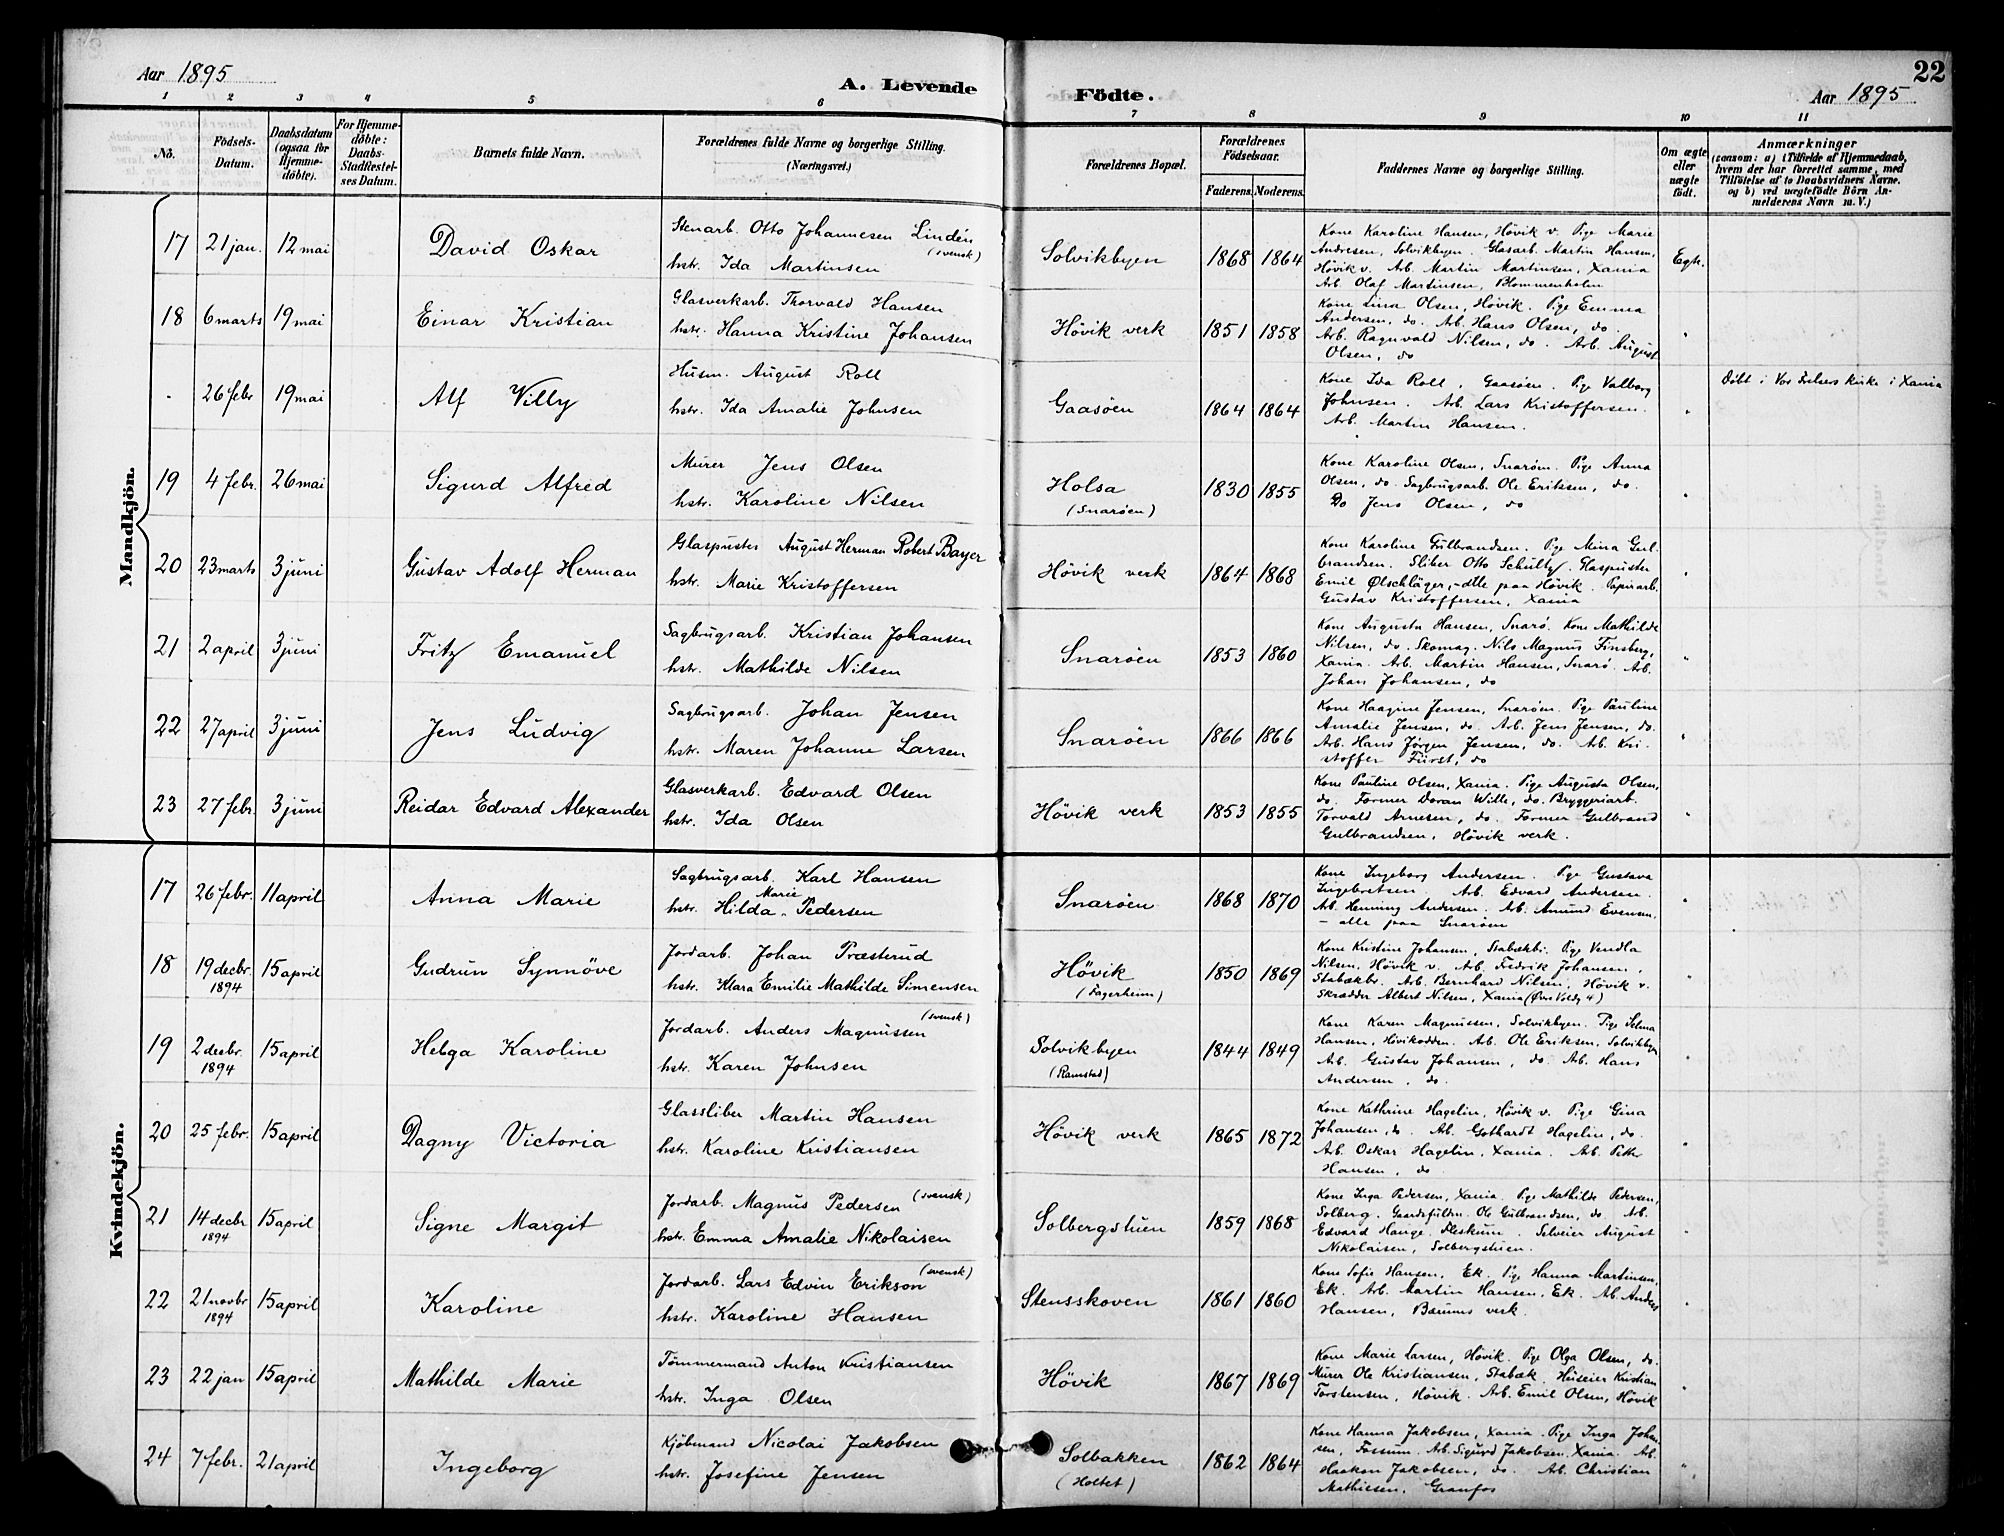 Aar 1895
A. Levende Födte.
22
Aar 1895
1 2 3 4 5 6 7 8 9 10 11
No.
Födsels-Datum.
Daabsdatum (ogsaa for Hjemme-döbte).
For Hjemme-döbte: Daabs-Stadfæstelses Datum.
Barnets fulde Navn.
Forældrenes fulde Navne og borgerlige Stilling. (Næringsvei.)
Forældrenes Bopæl.
Forældrenes Födselsaar.
Faderens. Moderens.
Faddernes Navne og borgerlige Stilling.
Om ægte eller uægte födt.
Anmærkninger
(saasom: a) i Tilfælde af Hjemmedaab, hvem der har forrettet samme, med Tilföielse af to Daabsvidners Navne, og b) ved uægtefödte Börn Anmelderens Navn m. V.)
Mandkjön.
17 21 jan. 12 mai David Oskar
Stenarb. Otto Johannesen Lindén (svensk)
hstr. Ida Martinsen
Solvikbyen 1868 1864
Kone Karoline Hansen, Hövik v. Pige Marie
Andresen, Solvikbyen. Glasarb. Martin Hansen,
Hövik v. Arb. Martin Martinsen, Xania
Arb. Olaf Martinsen, Blommenholm
Egte.
18 6 marts 19 mai Einar Kristian
Glasverkarb. Thorvald Hansen
hstr. Hanna Kristine Johansen
Hövik verk 1851 1858
Kone Lina Olsen, Hövik. Pige Emma
Andersen, do. Arb. Hans Olsen, do.
Arb. Ragnvald Nilsen, do. Arb. August
Olsen, do
"
- 26 febr 19 mai Alf Villy
Husm. August Roll
hstr. Ida Amalie Johnsen
Gaasöen 1864 1864
Kone Ida Roll, Gaasöen. Pige Valborg
Johnsen. Arb. Lars Kristoffersen.
Arb. Martin Hansen.
"
Döbt i Vor Frelsers kirke i Xania
19 4 febr. 26 mai Sigurd Alfred
Murer Jens Olsen
hstr. Karoline Nilsen
Holsa (Snaröen) 1830 1855
Kone Karoline Olsen, Snaröen. Pige Anna
Olsen, do. Sagbrugsarb. Ole Eriksen, do.
Do Jens Olsen, do
"
20 23 marts 3 juni Gustav Adolf Herman
Glaspuster August Herman Robert Bayer
hstr. Marie Kristoffersen
Hövik verk 1864 1868
Kone Karoline Gulbrandsen. Pige Mina Gul-
brandsen. Sliber Otto Schultz. Glaspuster
Emil Ølschläger, - alle paa Hövik. Papirarb.
Gustav Kristoffersen, Xania
"
21 2 april 3 juni Fritz Emanuel
Sagbrugsarb. Kristian Johansen
hstr. Mathilde Nilsen
Snaröen 1853 1860
Kone Augusta Hansen, Snarö. Kone Mathilde
Nilsen, do. Skomag. Nils Magnus Finsberg,
Xania. Arb. Martin Hansen, Snarö. Arb.
Johan Johansen, do
"
22 27 april 3 juni Jens Ludvig
Sagbrugsarb. Johan Jensen
hstr. Maren Johanne Larsen
Snaröen 1866 1866
Kone Haagine Jensen, Snaröen. Pige Pauline
Amalie Jensen, do. Arb. Jens Jensen, do.
Arb. Hans Jörgen Jensen, do. Arb. Kri-
stoffer Fürst, do
"
23 27 febr. 3 juni Reidar Edvard Alexander
Glasverkarb. Edvard Olsen
hstr. Ida Olsen
Hövik verk 1853 1855
Kone Pauline Olsen, Xania. Pige Augusta Olsen,
do. Former Doran Wille, do. Bryggeriarb.
Torvald Arnesen, do. Former Gulbrand
Gulbrandsen, Hövik verk.
"
Kvindekjön.
17 26 febr. 11 april Anna Marie
Sagbrugsarb. Karl Hansen
hstr. Hilda Marie Pedersen
Snaröen 1868 1870
Kone Ingeborg Andersen. Pige Gustava
Ingebretsen. Arb. Edvard Andersen.
Arb. Henning Andersen. Arb. Amund Evensen,
- alle paa Snaröen
"
18 19 decbr. 1894 15 april Gudrun Synnöve
Jordarb. Johan Præsterud
hstr. Klara Emilie Mathilde Simensen
Hövik (Fagerheim) 1850 1869
Kone Kristine Johansen, Stabækbr. Pige Vendla
Nilsen, Hövik v. Arb. Fredrik Johansen,
Stabækbr. Arb. Bernhard Nilsen, Hövik v.
Skrædder Albert Nilsen, Xania (Øvre Voldg 4)
"
19 2 decbr. 1894 15 april Helga Karoline
Jordarb. Anders Magnussen (svensk)
hstr. Karen Johnsen
Solvikbyen (Ramstad) 1844 1849
Kone Karen Magnussen, Solvikbyen. Pige Selma
Hansen, Hövikodden. Arb. Ole Eriksen, Solvikbyen
Arb. Gustav Johansen, do. Arb. Hans
Andersen, do.
"
20 25 febr. 15 april Dagny Victoria
Glassliber Martin Hansen
hstr. Karoline Kristiansen
Hövik verk 1865 1872
Kone Kathrine Hagelin, Hövik v. Pige Gina
Johansen, do. Arb. Gothardt Hagelin, do.
Arb. Oskar Hagelin, Xania. Arb. Petter
Hansen, do
"
21 14 decbr 1894 15 april Signe Margit
Jordarb. Magnus Pedersen (svensk)
hstr. Emma Amalie Nikolaisen
Solbergstuen 1859 1868
Kone Inga Pedersen, Xania. Pige Mathilde Pedersen,
Solberg. Gaardsfuldm. Ole Gulbrandsen, do. Arb.
Edvard Hauge, Fleskum. Selveier August
Nikolaisen, Solbergstuen.
"
22 21 novbr 1894 15 april Karoline
Jordarb. Lars Edvin Erikson (svensk)
hstr. Karoline Hansen
Stensskoven 1861 1860
Kone Sofie Hansen, Ek. Pige Hanna Martinsen,
Ek. Arb. Martin Hansen, Ek. Arb. Anders
Hansen, Bærums verk.
"
23 22 jan 15 april Mathilde Marie
Tömmermand Anton Kristiansen
hstr. Inga Olsen
Hövik 1867 1869
Kone Marie Larsen, Hövik. Pige Olga Olsen, do.
Murer Ole Kristiansen, Stabæk. Huseier Kristian
Torstensen, Hövik. Arb. Emil Olsen, Hövik
"
24 7 febr. 21 april Ingeborg
Kjöbmand Nicolai Jakobsen
hstr. Josefine Jensen
Solbakken (Holtet) 1862 1864
Kone Hanna Jakobsen, Xania. Pige Inga Johan-
sen, Fossum. Arb. Sigurd Jakobsen, Xania. Arb.
Haakon Jakobsen, do. Arb. Christian
Mathiesen, Granfos
"